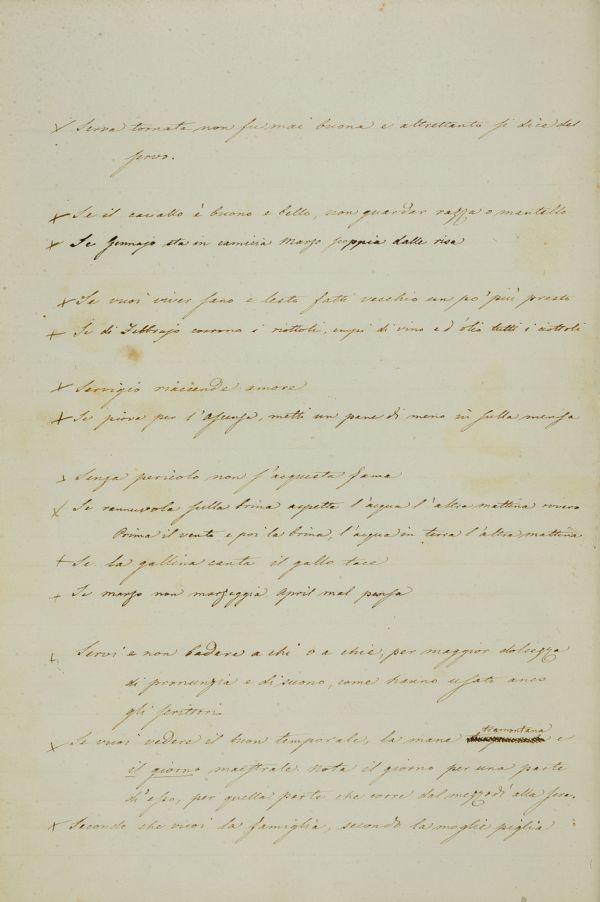 Serva tornata non fu mai buona e altrettanto si dice del
servo.
Se il cavallo è buono e bello, non guardar razza o mantello
Se Gennajo sta in camicia Marzo scoppia dalle risa
Se vuoi viver sano e lesto fatti vecchio un po' più presto
Se di Febbrajo corrono i viottoli, empi di vino ed olio tutti i ciottoli
Servigio riaccende amore
Se piove per l'Ascensa, metti un pane di meno in sulla mensa
Senza pericolo non s'acquista fama
Se rannuvola sulla brina aspetta l'acqua l'altra mattina ovvero
Prima il vento e poi la brina, l'acqua in terra l'altra mattina
Se la gallina canta il gallo tace
Se marzo non marzeggia April mal pensa
Servi e non badare a chi o a chie, per maggior dolcezza
di pronunzia e di suono, come hanno usato anco
gli scrittori
Se vuoi vedere il buon temporale, la mane tramontana e
il giorno maestrale. Nota il giorno per una parte
d'esso, per quella parte che corre dal mezzodì alla sera.
Secondo che vuoi la famiglia, secondo la moglie piglia